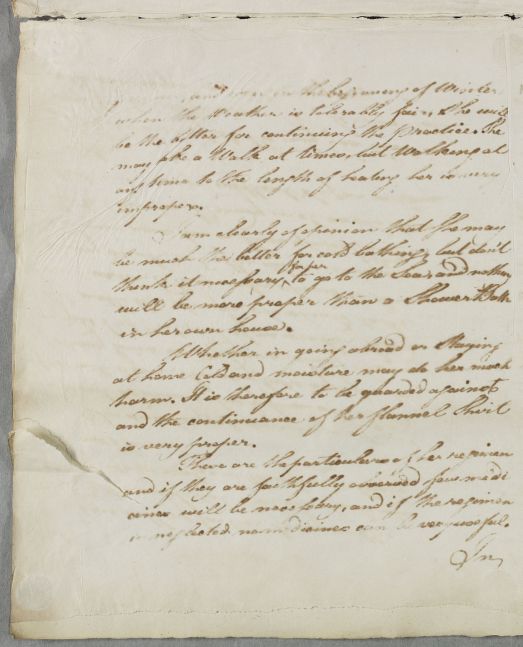 and even in the beginning of Winter
when the Weather is tolerably fair, & She will
be the better for continuing the practice. She
may take a Walk at times, but Walking at
any time to the length of heating her is very
improper.
I am clearly of opinion that She may
be much the better for cold bathing, but don't
think it necessary for her to go to the Sea and nothing
will be more proper than a Shower Bath
in her own house.
Whether in going abroad or Staying
at home Cold and moisture may do her much
harm. It is therefore to be guarded against
and the continuance of her flannel Shirt
is very proper.
These are the particulars of her regimen
and if they are faithfully observed few medi
cines will be necessary, and if the regimen
is neglected no medicines can be very useful.
In